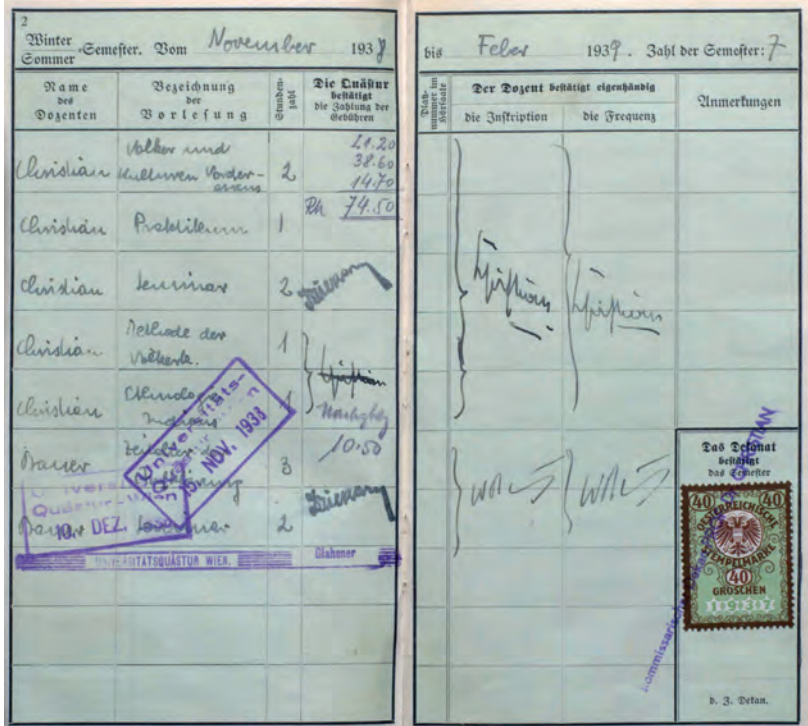 2
Winter
Sommer -Semester. Vom November 1938
Name
des
Dozenten
Bezeichnung
der
Vorlesung
Stunden-
zahl
Die Quästur
bestätigt
die Zahlung der
Gebühren
Christian
Völker und
Kulturen Vorder-
asiens
2
21.20
38.60
14.70
74.50
Christian Praktikum 1
Christian Seminar 2
Christian
Methode der
Völkerk.
1
Christian
Christian
Nachzhlg
10.50
Bauer
Zeitalter der
3
Bauer Seminar 2
Universitäts-
Quästur Wien
15. NOV. 1938
Universitäts-
Quästur-Wien
10. DEZ. 1938
UNIVERSITÄTSQUÄSTUR WIEN.
Glahsner
bis Feber 1939. Zahl der Semester: 7
Platz-
nummer im
Hörsaale
Der Dozent bestätigt eigenhändig
die Inskription
die Frequenz
Anmerkungen
Christian
Christian
Das Dekanat
bestätigt
das Semester
40 40
ÖSTERREICHISCHE
STEMPELMARKE
40
GROSCHEN
1937
Kommissarischer Dekan Prof. Dr. CHRISTIAN
d. Z. Dekan.